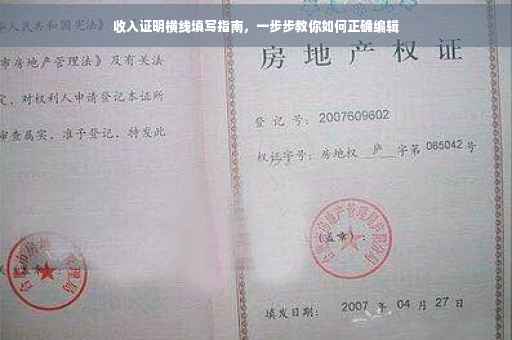 收入证明横线填写指南，一步步教你如何正确编辑
人民共和国宪法》
市房地产管理法》及有关法
定，对权利人申请登记本证所
审查属实，准予登记，特发此
房地产权证
登记号：2007609602
权证字号：房地权庐字第085042号
(盖章)：
填发日期：2007年04月27日